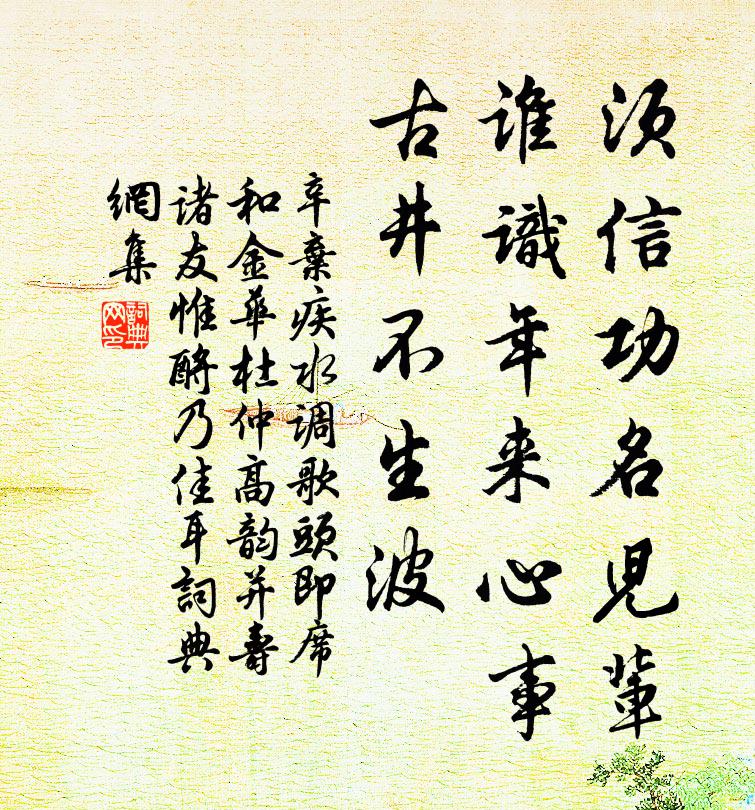 须信功名児輩
谁識年来心事
古井不生波
辛棄疾水调歌頭即席
和金華杜仲高韵并壽
诸友惟酹乃佳耳詞典
網集
詞典
网印